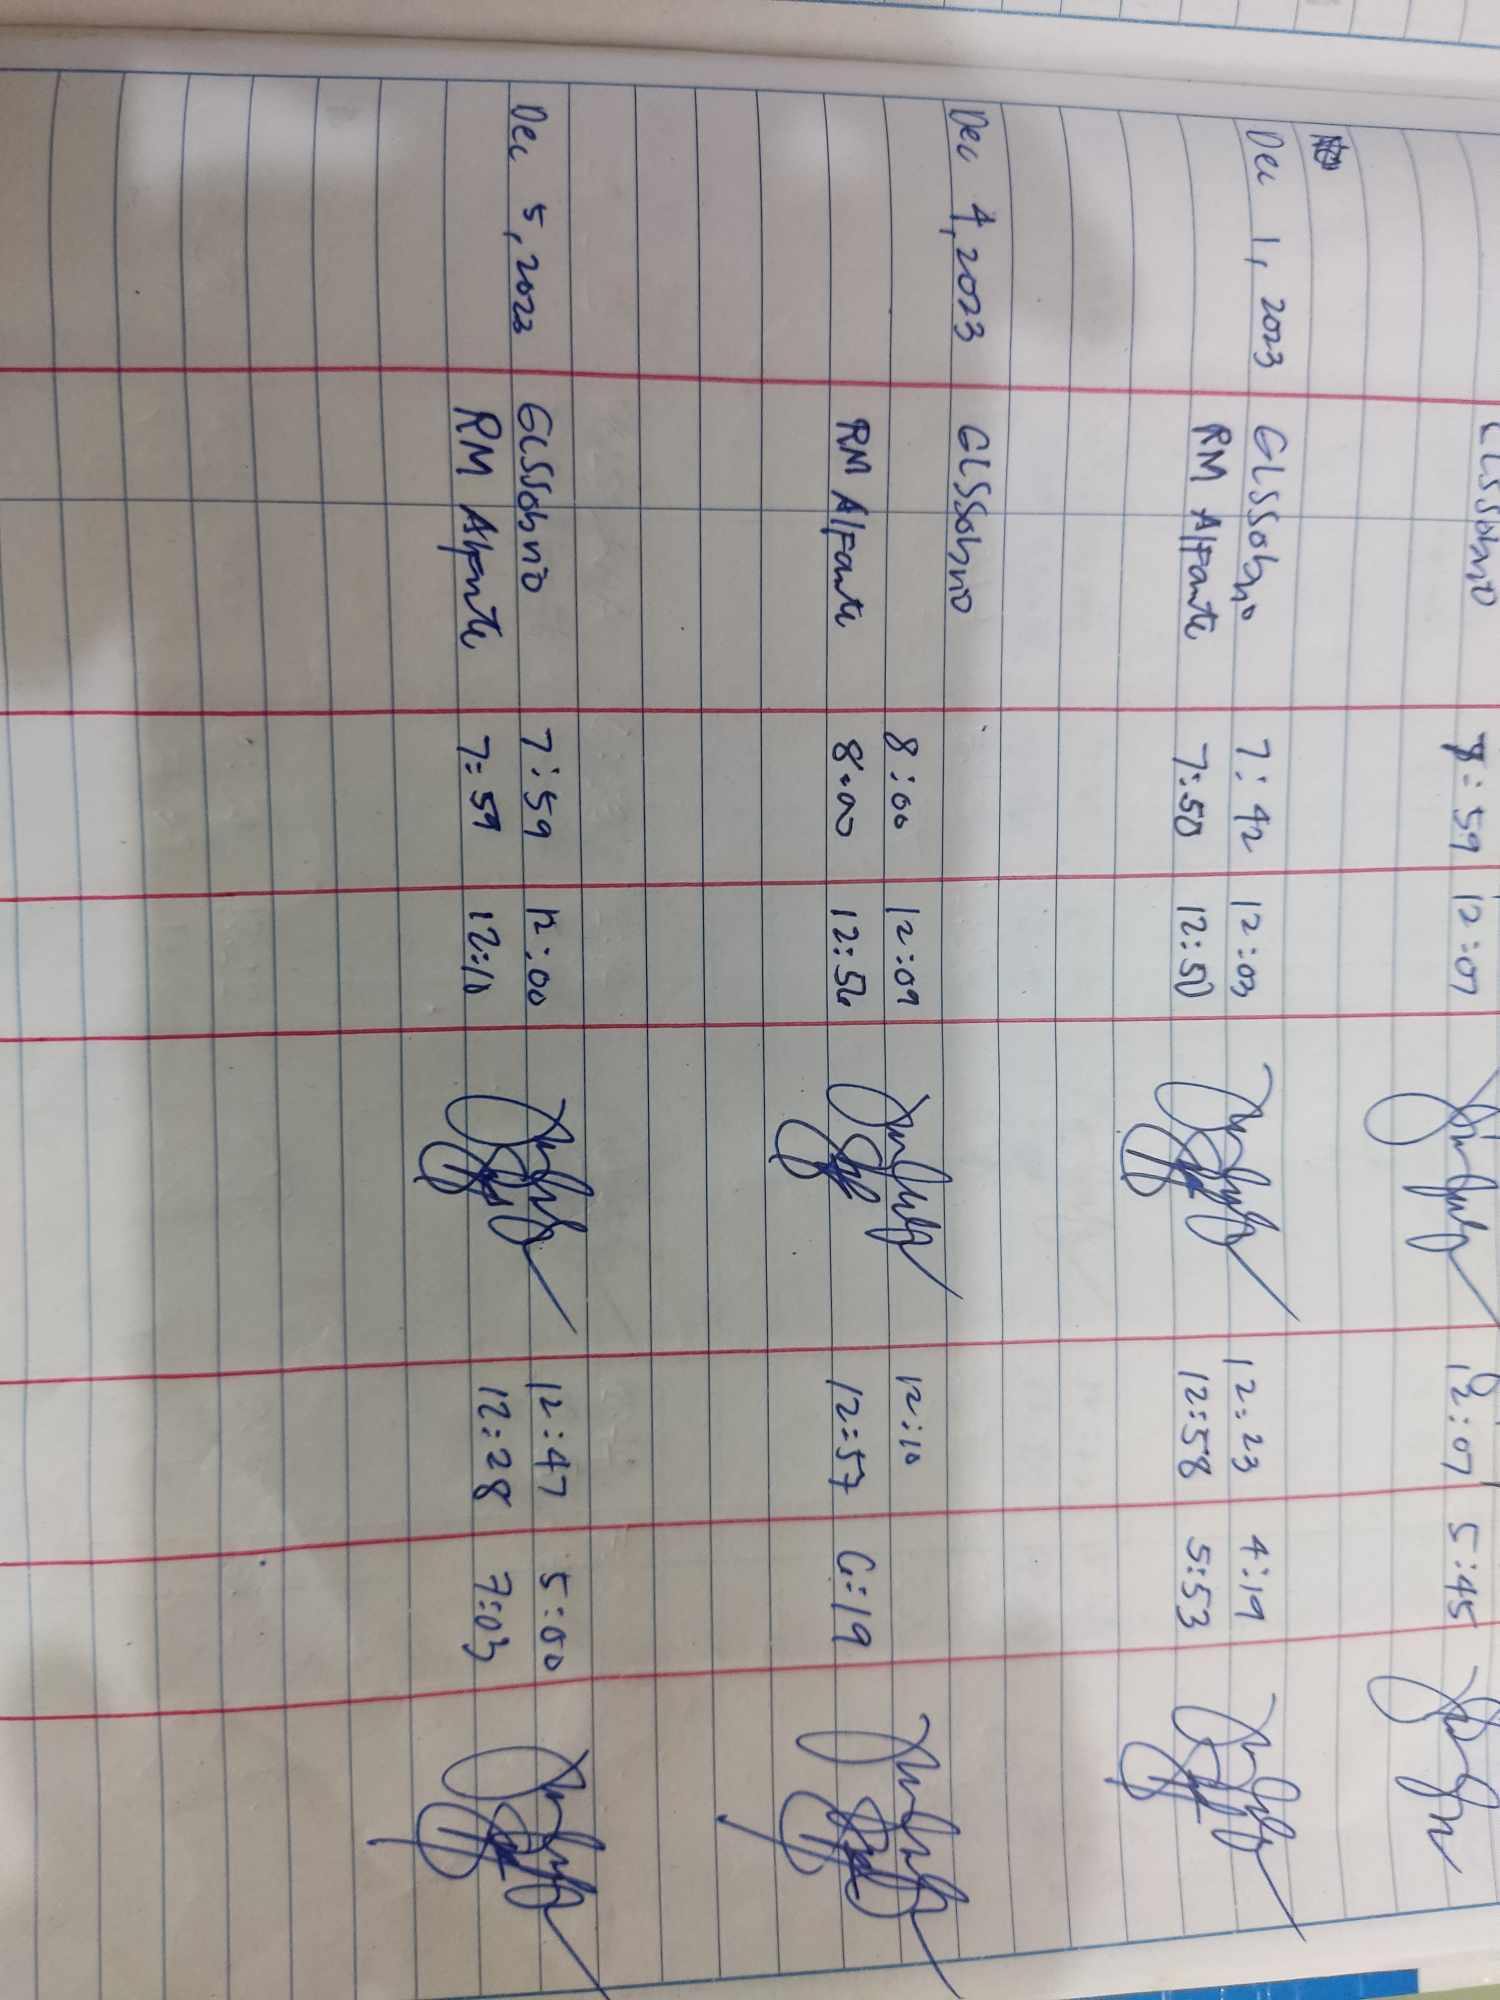 GLSSobrio 7:59 12:07 12:07 5:45
Dec 1, 2023 GLSSobrio 7:42 12:03 12:23 4:19
RM Alfante 7:50 12:50 12:58 5:53
Dec 4, 2023 GLSSobrio
8:00 12:09 12:10
RM Alfante 8:00 12:56 12:57 6:19
Dec 5, 2023 GLSSobrio 7:59 12:00 12:47 5:00
RM Alfante 7:59 12:10 12:28 7:03